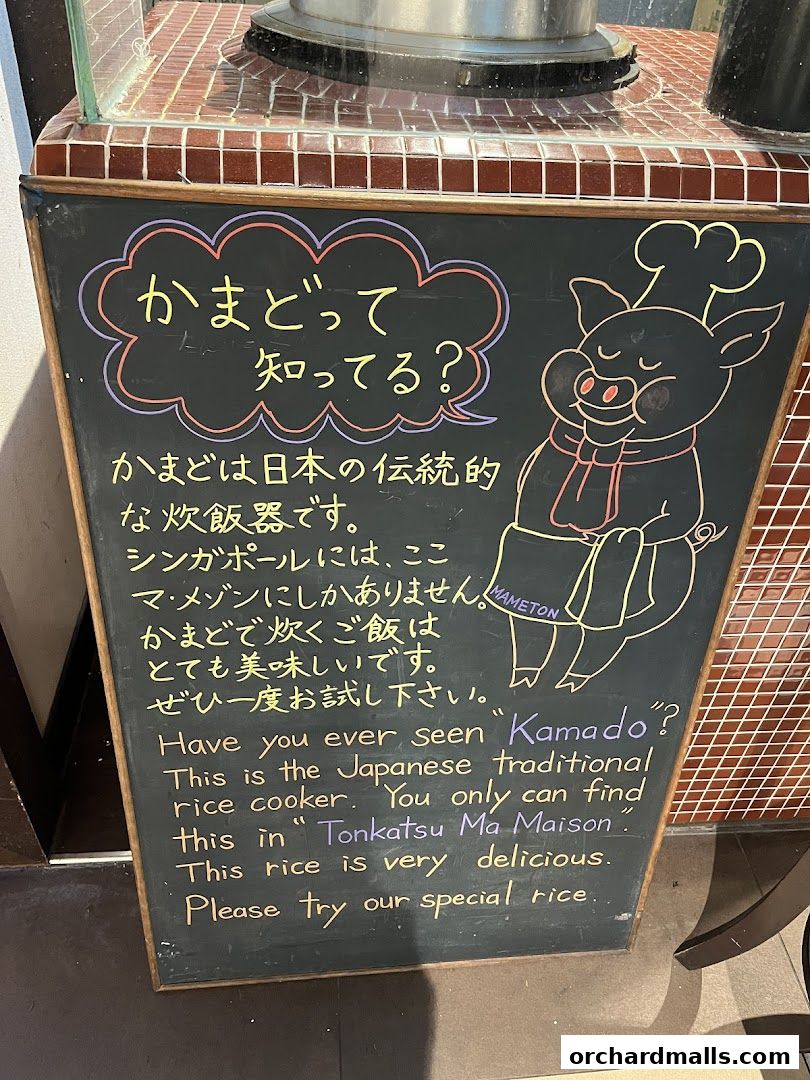 かまどって
知ってる?
かまどは日本の伝統的
な炊飯器です。
シンガポールには、ここ
マ・メゾンにしかありません。
かまどで炊くご飯は
とても美味しいです。
ぜひ一度お試し下さい。
MAMETON
Have you ever seen "Kamado"?
This is the Japanese traditional
rice cooker. You only can find
this in "Tonkatsu Ma Maison".
This rice is very delicious.
Please try our special rice.
orchardmalls.com